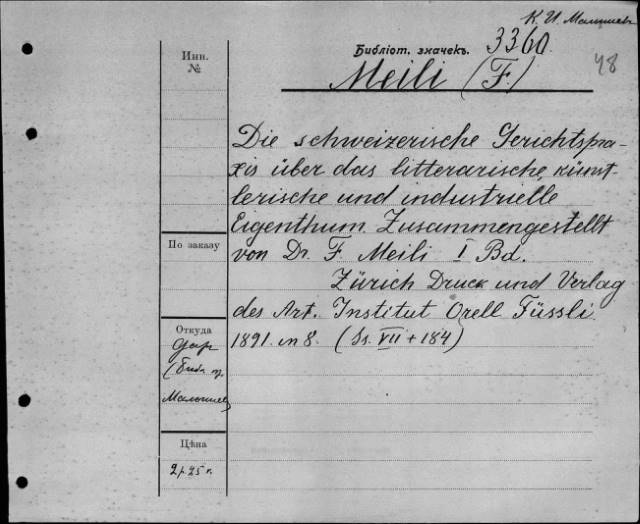 К. И. Малышев
Библіот. значекъ. 3360.
48
Инв.
№
Meili (F.)
Die schweizerische Gerichtspra-
xis über das litterarische, künst-
lerische und industrielle
Eigenthum. Zusammengestellt
По заказу
von Dr. F. Meili I Bd.
Zürich Druck und Verlag
des Art. Institut Orell Füssli
Откуда
1891. in 8. (Ss. VII + 184)
дар
(Библ. пр.
Малышева
Цѣна
2 р 25 к.